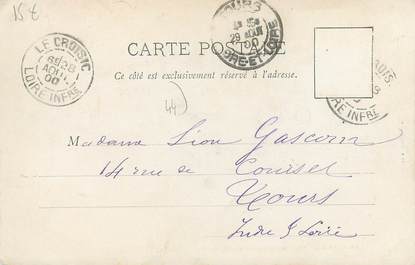 15€
LE CROISIC
28
AOUT
00
LOIRE INFRE
TOURS
29 AOUT
00
INDRE-ET-LOIRE
LOIRE INFRE
CARTE POSTALE
Ce côté est exclusivement réservé à l'adresse.
44
Madame Léon
14 rue de
Tours
Indre & Loire